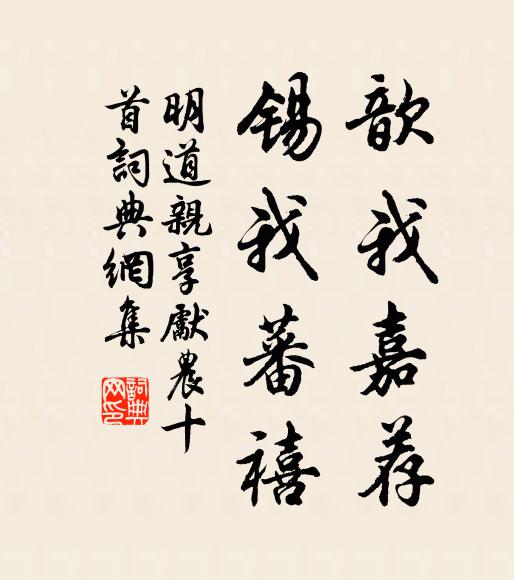 歆我嘉荐
錫我蕃禧
明道親享獻農十
首詞典網集
詞典
网印